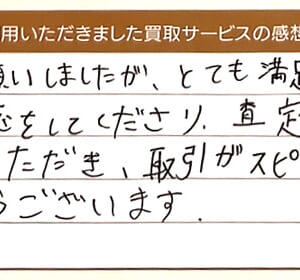 用いただきました買取サービスの感想
願いしましたが、とても満足
応をしてくださり、査定
ただき、取引がスピ
うございます.